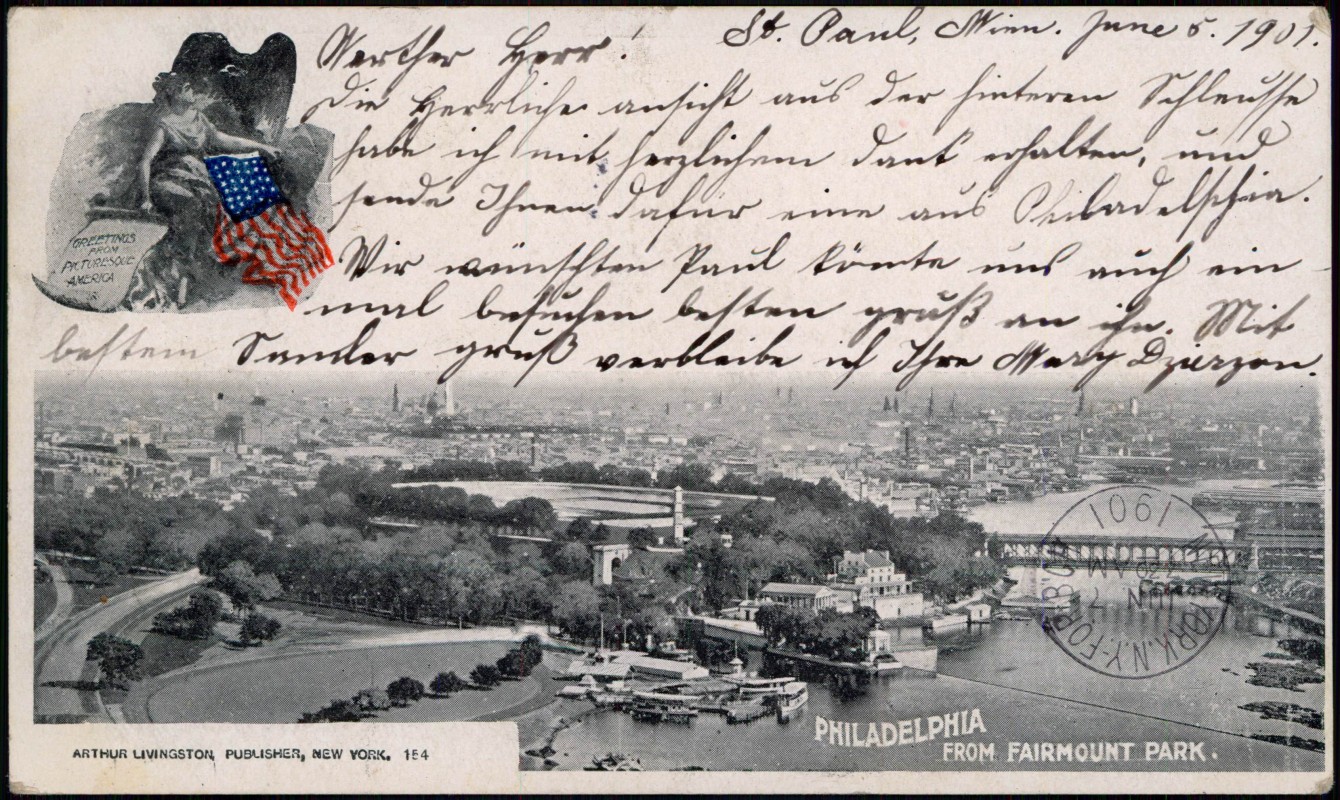 St. Paul, Minn. June 5. 1901.
Werther Herr!
Die Herrliche ansicht aus der hinteren Schleusse
habe ich mit herzlichem dank erhalten, und
sende Ihnen dafür eine aus Philadelschia.
Wir wünschten Paul könnte uns auch ein-
mal besuchen besten gruß an ihn. Mit
bestem gruß verbleibe ich Ihre Mary Dzierzon.
GREETINGS
FROM
PICTURESQUE
AMERICA
1901
NEW YORK, N.Y.-FOR'BCH
JUN 7
AM
PHILADELPHIA
FROM FAIRMOUNT PARK.
ARTHUR LIVINGSTON, PUBLISHER, NEW YORK. 154